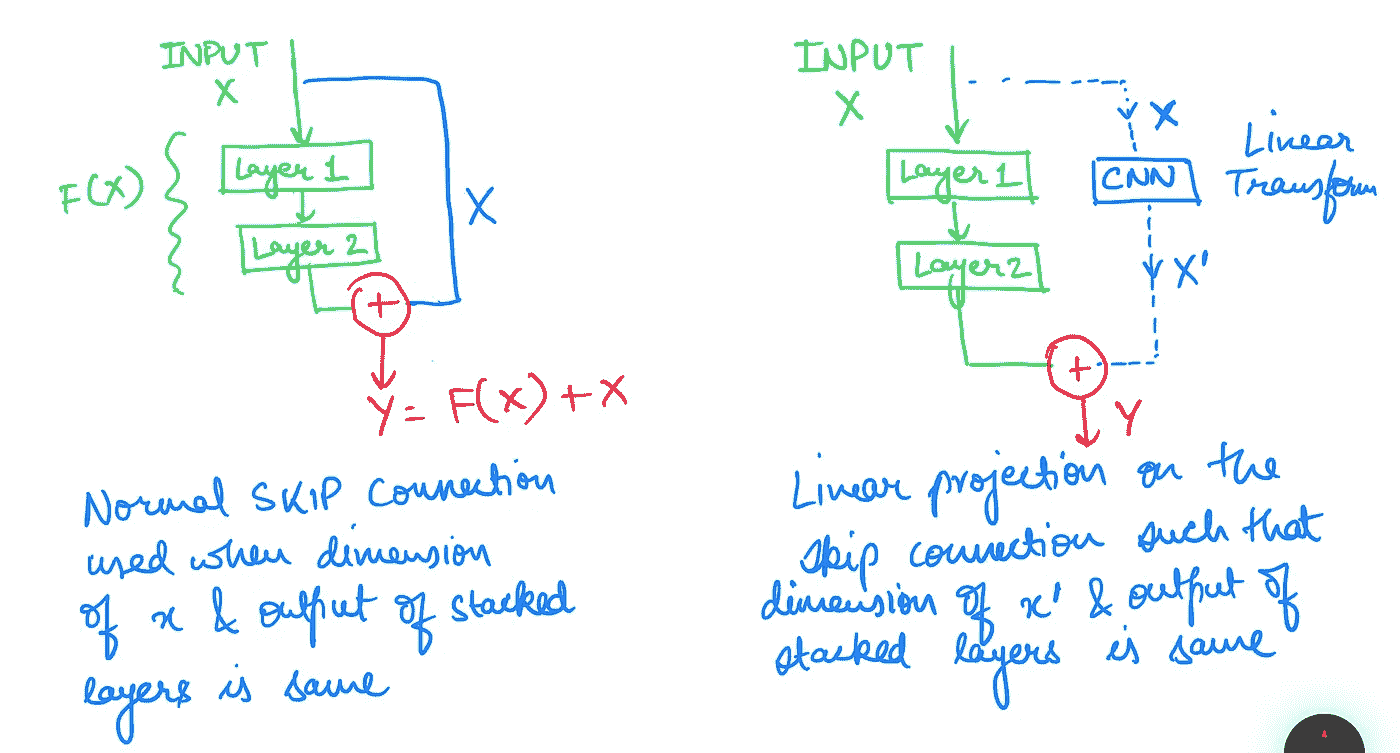 INPUT
X
F(X)
Layer 1
Layer 2
X
+
Y = F(X) + X
Normal SKIP Connection
used when dimension
of x & output of stacked
layers is same
INPUT
X
Layer 1
Layer 2
X
CNN
Linear
Transform
X'
+
Y
Linear projection on the
skip connection such that
dimension of x' & output of
stacked layers is same